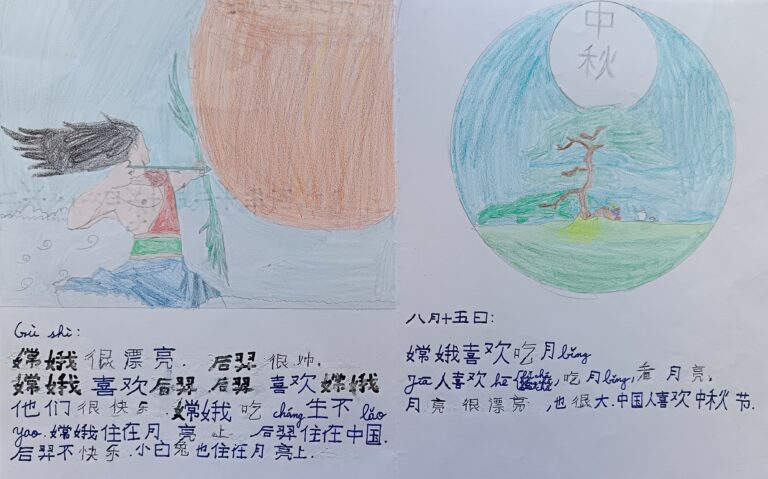 Gù shì:
嫦娥 很 漂 亮. 后羿 很 帅.
嫦娥 喜欢 后羿 后羿 喜欢 嫦娥
他们 很 快乐. 嫦娥 吃 cháng 生不 lǎo
yao. 嫦娥住在月 亮 上. 后羿住在中国.
后羿不快乐. 小白兔也住在月亮上.
中
秋
八月十五日:
嫦娥喜欢吃月bǐng
人喜欢 hē, 吃月bǐng, 看 月亮,
月 亮 很 漂亮, 也很大. 中国人喜欢中秋节.